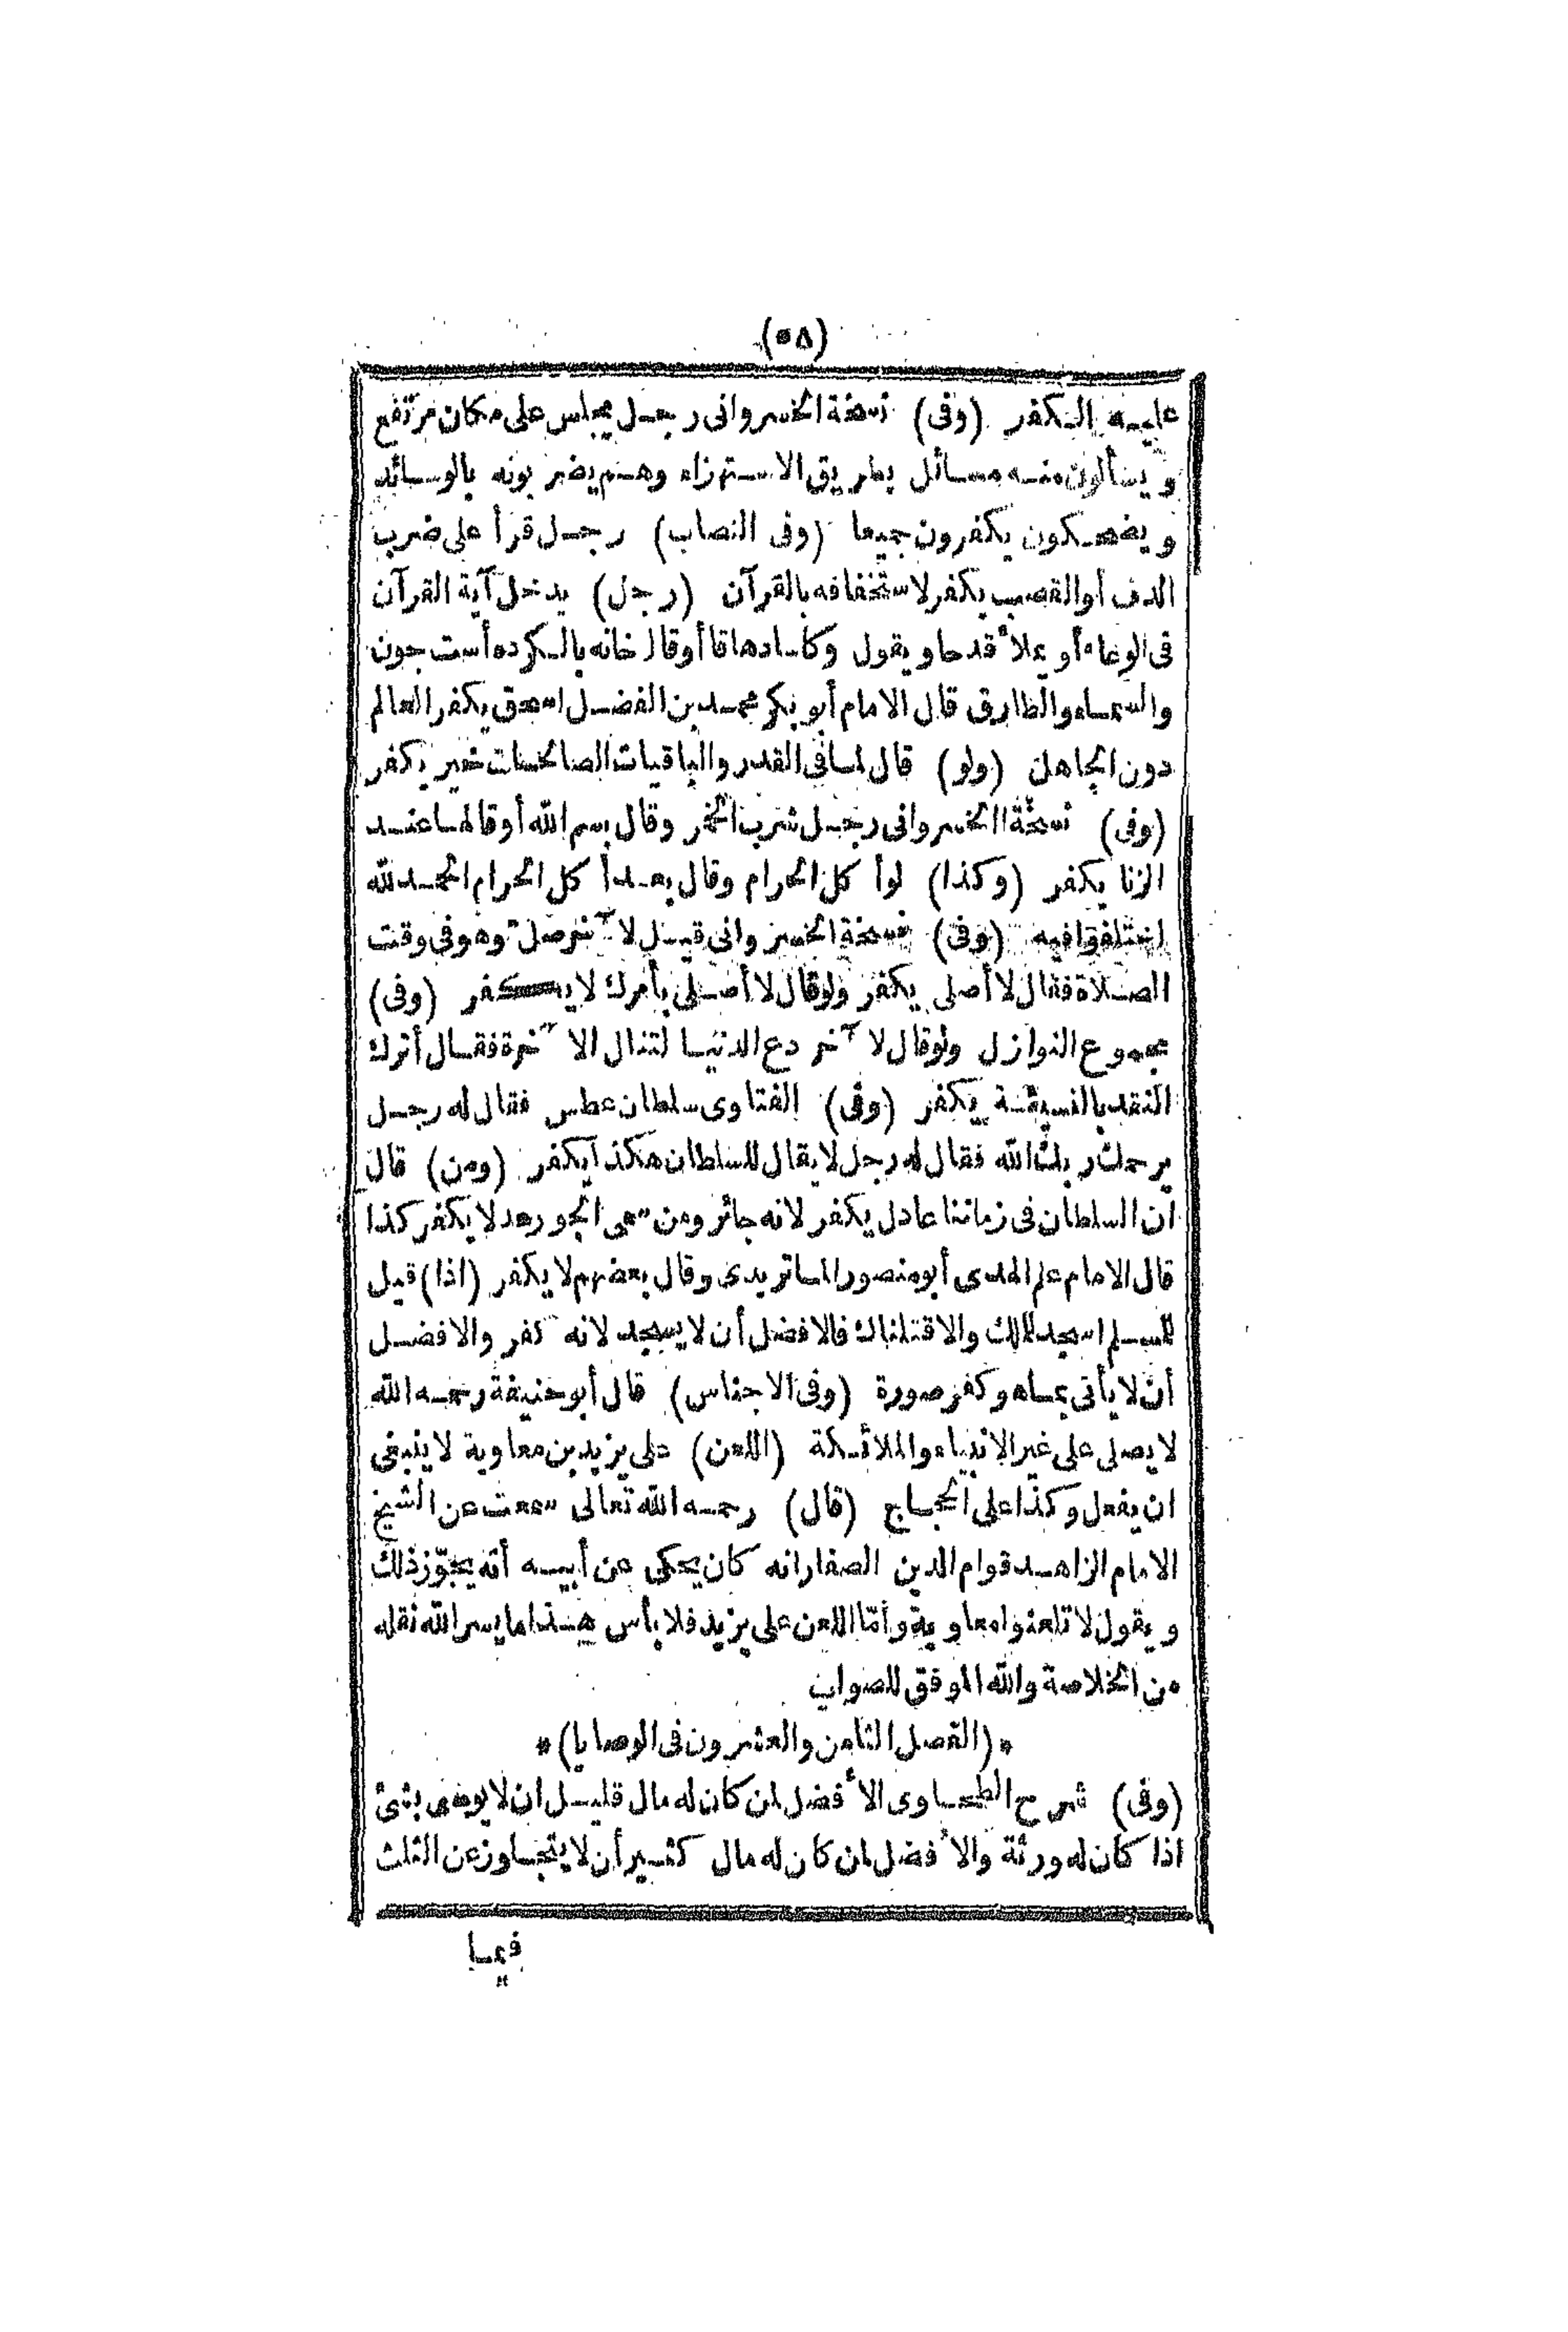 (٥٨)
عليه الكفر (وفى) نسخة الخسروانى رجل يجلس على مكان مرتفع
ويسألون منه مسائل بطريق الاستهزاء وهم يضربونه بالوسائد
ويضحكون يكفرون جميعا (وفى النصاب) رجل قرأ على ضرب
الدف أو القصب يكفر لاستخفافه بالقرآن (رجل) يدخل آية القرآن
فى الوعاء أو يملأ قدحا ويقول وكأسا دهاقا أو قال خانه بالكرده أست جون
والسماء والطارق قال الامام أبو بكر محمد بن الفضل اسحق يكفر العالم
دون الجاهل (ولو) قال لما فى القدر والباقيات الصالحات خير يكفر
(وفى) نسخة الخسروانى رجل شرب الخمر وقال بسم الله أو قالها عند
الزنا يكفر (وكذا) لو أكل الحرام وقال بعد أكل الحرام الحمد لله
اختلفوا فيه (وفى) نسخة الخسروانى قيل لآخر صل وهو فى وقت
الصلاة فقال لا أصلى يكفر ولو قال لا أصلى بأمرك لا يكفر (وفى)
مجموع النوازل ولو قال لآخر دع الدنيا لتنال الآخرة فقال أترك
النقد بالنسيئة يكفر (وفى) الفتاوى سلطان عطس فقال له رجل
يرحمك ربك الله فقال له رجل لا يقال للسلطان هكذا يكفر (ومن) قال
ان السلطان فى زماننا عادل يكفر لانه جائر ومن سمى الجور عدلا يكفر كذا
قال الامام علم الهدى أبو منصور الماتريدى وقال بعضهم لا يكفر (اذا) قيل
للمسلم اسجد للملك والا قتلناك فالافضل أن لا يسجد لانه كفر والافضل
أن لا يأتى بما هو كفر صورة (وفى الاجناس) قال أبو حنيفة رحمه الله
لا يصلى على غير الانبياء والملائكة (اللعن) على يزيد بن معاوية لا ينبغى
ان يفعل وكذا على الحجاج (قال) رحمه الله تعالى سمعت عن الشيخ
الامام الزاهد قوام الدين الصفار انه كان يحكى عن أبيه أنه يجوّز ذلك
ويقول لا تلعنوا معاوية وأمّا اللعن على يزيد فلا بأس هذا ما يسر الله نقله
من الخلاصة والله الموفق للصواب
*(الفصل الثامن والعشرون فى الوصايا)*
(وفى) شرح الطحاوى الأفضل لمن كان له مال قليل ان لا يوصى بشئ
اذا كان له ورثة والأفضل لمن كان له مال كثير أن لا يتجاوز عن الثلث
فيما